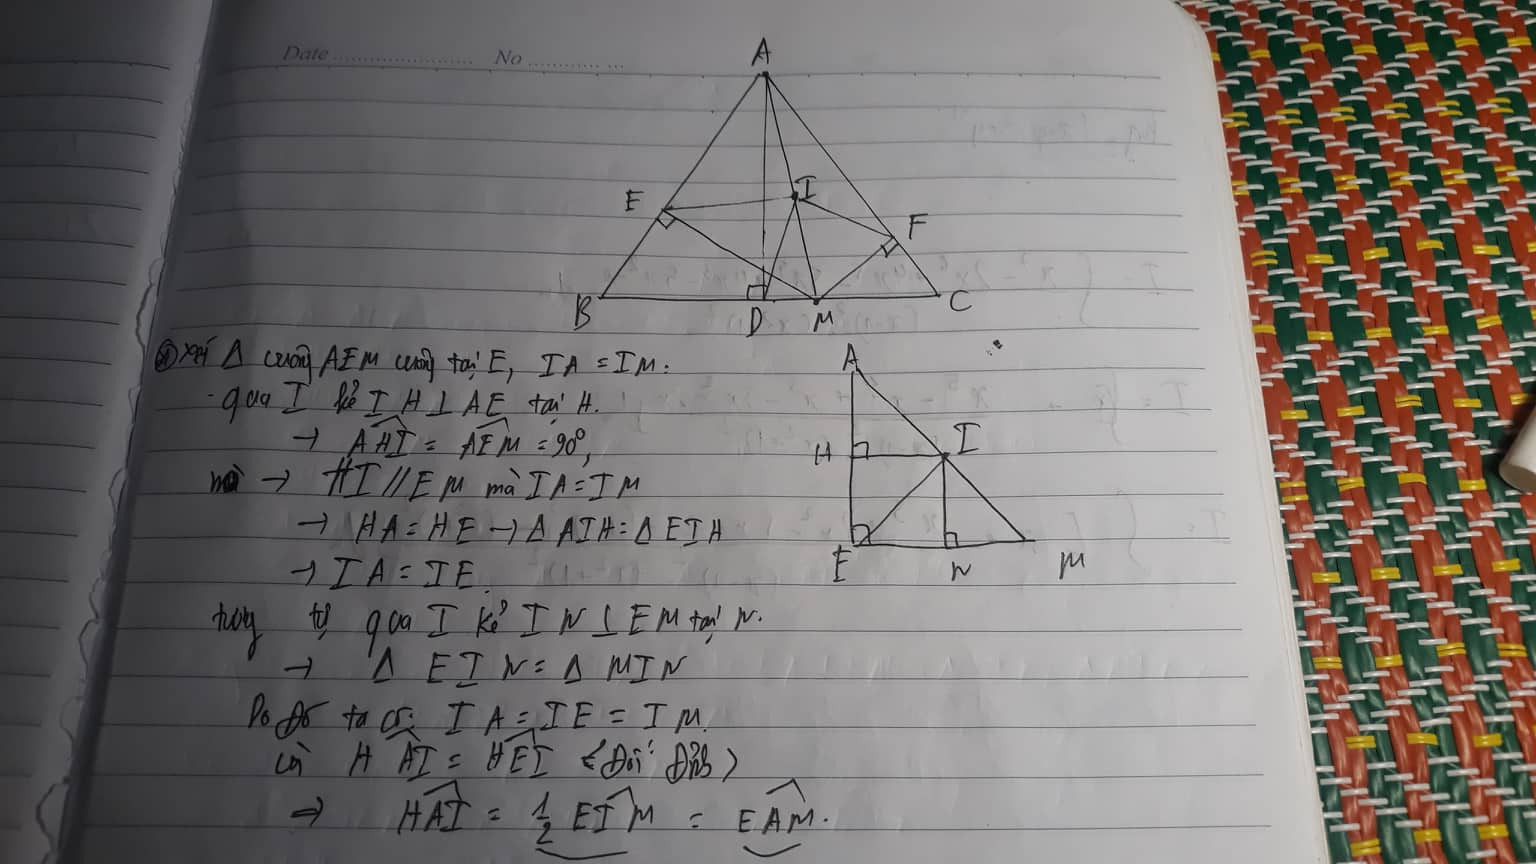 Date ........................ No ............ ...
A
E
I
F
B
D
M
C
Xét Δ vuông AEM vuông tại E, IA = IM.
- qua I kẻ IH ⊥ AE tại H.
→ \widehat{AHI} = \widehat{AEM} = 90°,
→ HI // EM mà IA = IM
→ HA = HE → Δ AIH = Δ EIH
→ IA = IE.
tương tự qua I kẻ IN ⊥ EM tại N.
→ Δ EIN = Δ MIN
Do đó ta có: IA = IE = IM.
và \widehat{HAI} = \widehat{HEI} (Đối Đỉnh)
⇒ \widehat{HAI} = 1/2 \widehat{EIM} = \widehat{EAM}.
A
H
I
E
N
M